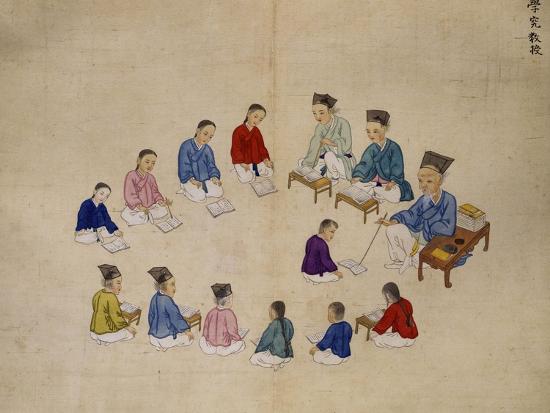 學究教授